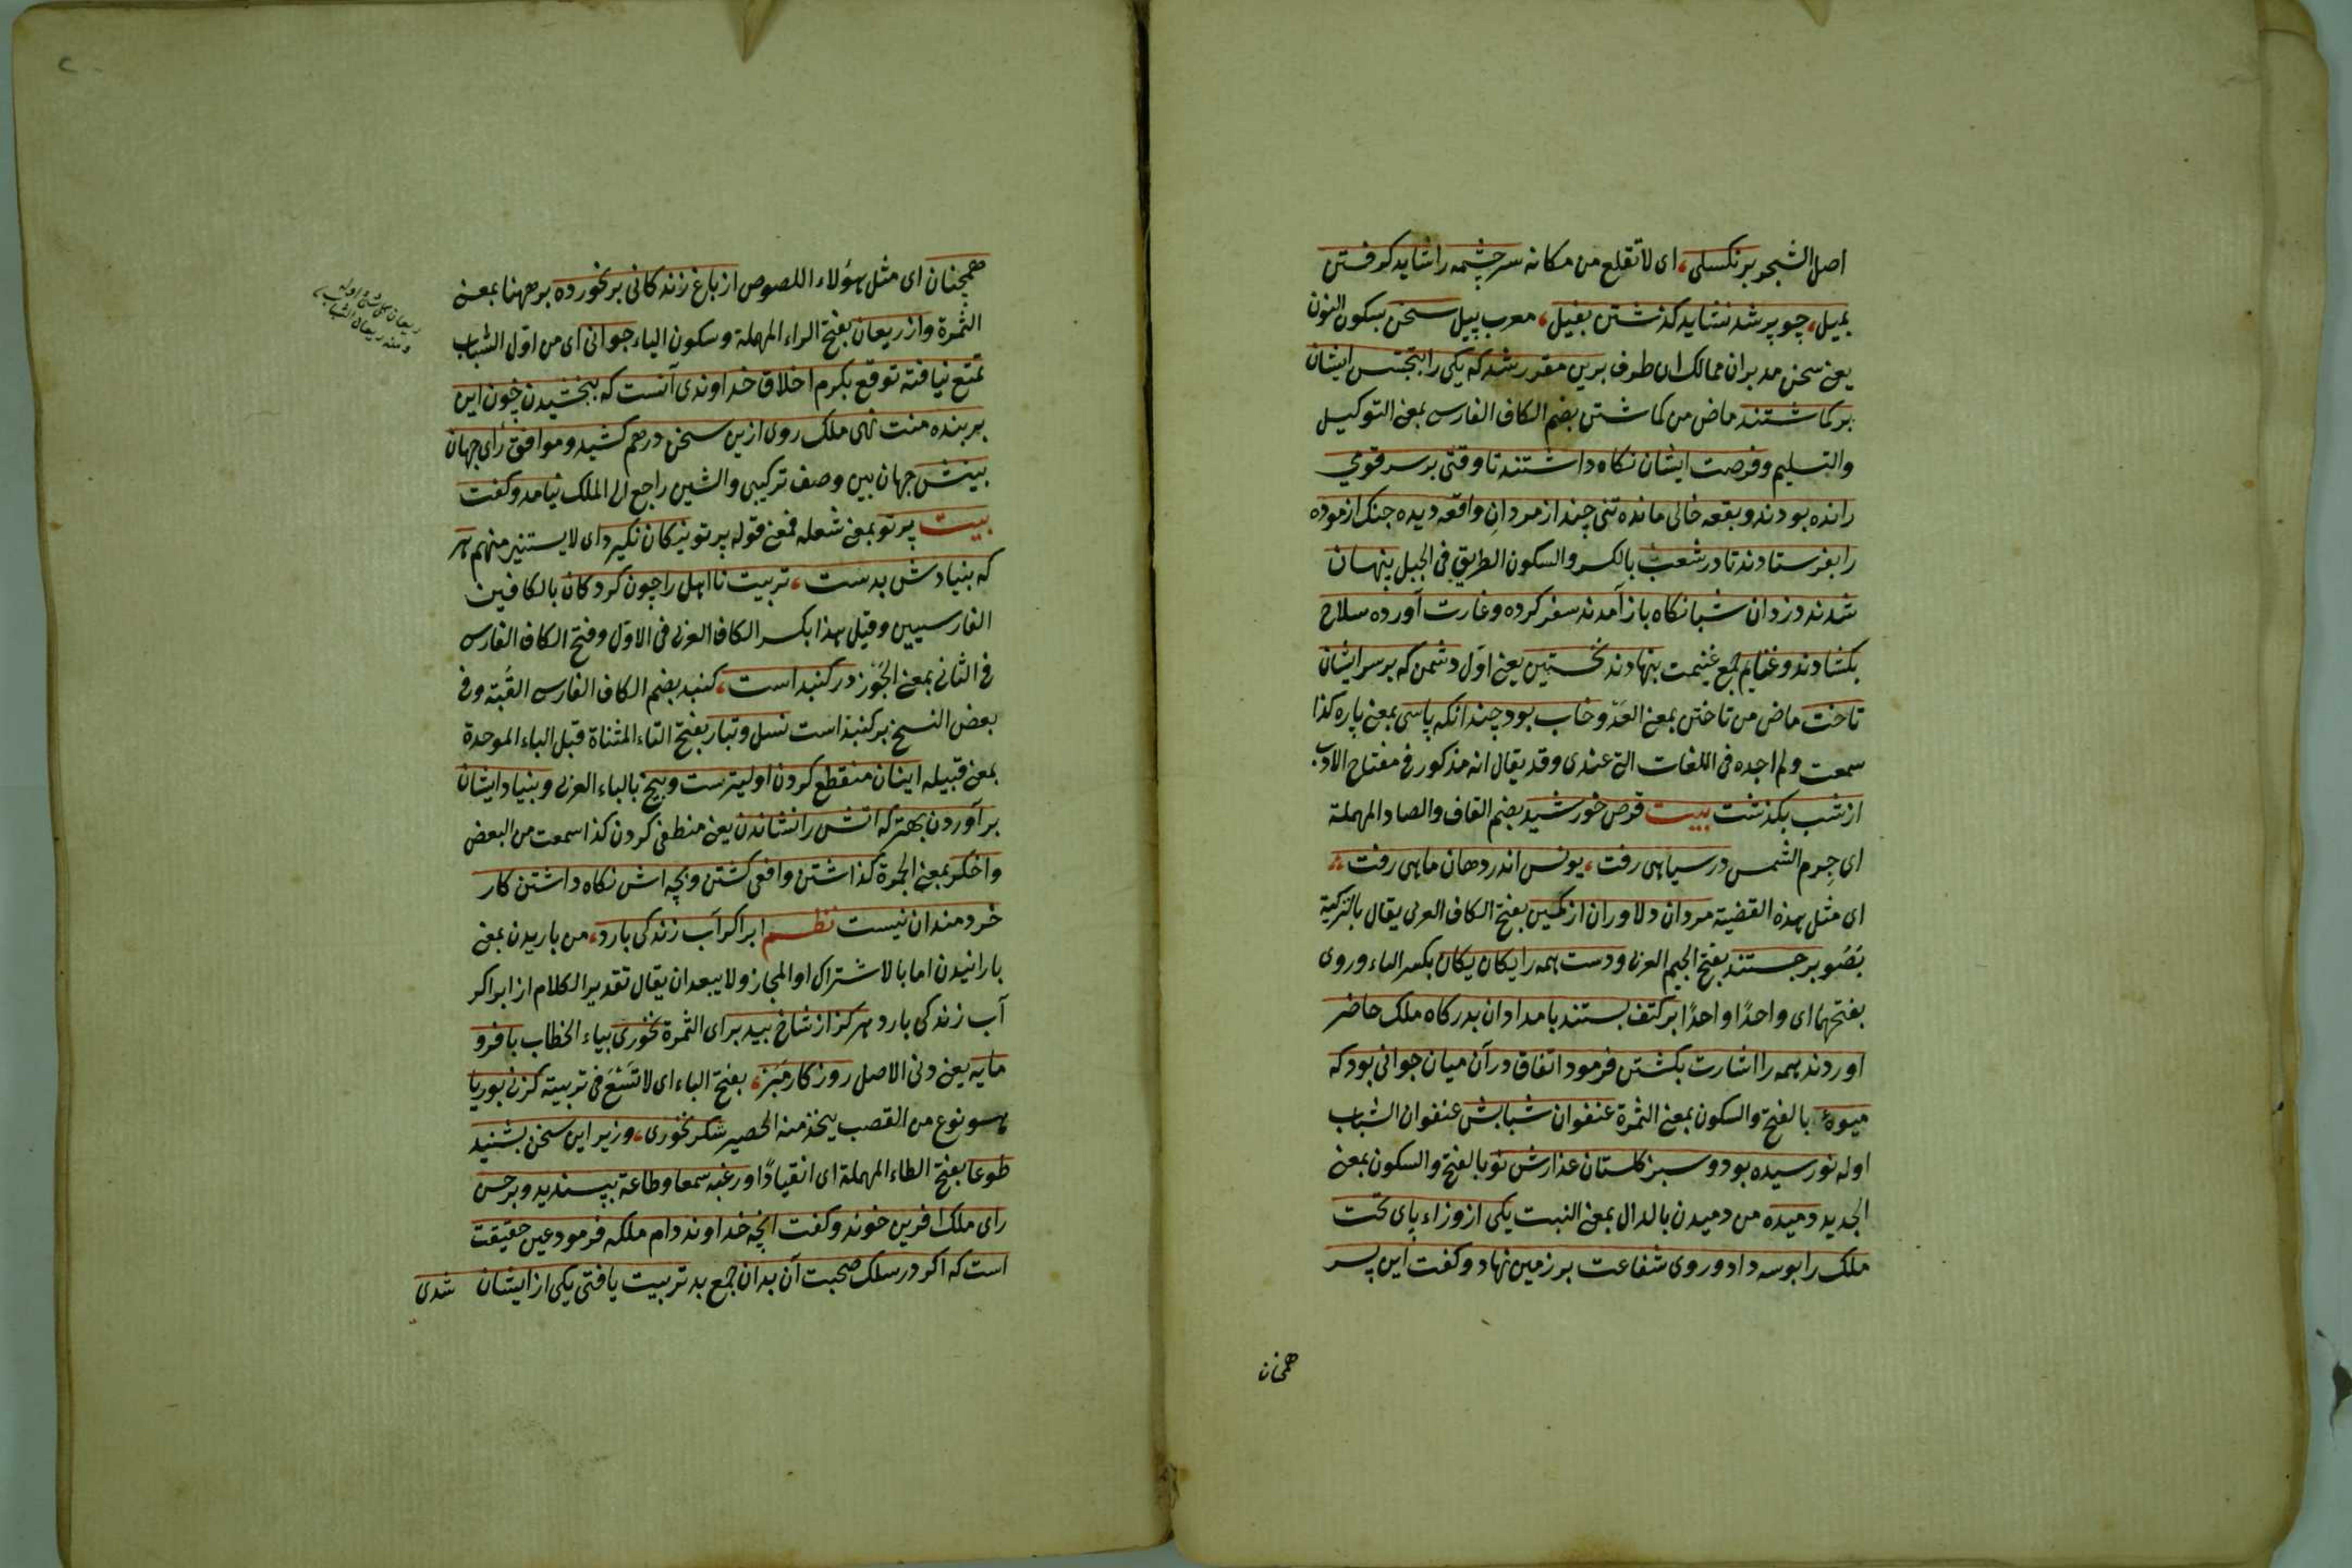 اصل الشجر برنكسلی، ای لا تقلع من مکانه سرچشمه را شاید کرفتن
بمیل، چو پر شد نشاید کذشتن بفیل، معرب پیل سخن بسکون النون
یعنی سخن مدبران ممالک ان طرف برین مقرر شد که یکی را بتجسس ایشان
برکماشتند ماض من کماشتن بضم الکاف الفارسی بمعنی التوکیل
والتسلیم وفرصت ایشان نکاه داشتند تا وقتی بر سر قومی
رانده بودند وبقعه خالی مانده تنی چند از مردان واقعه دیده جنک ازموده
را بفرستادند تا در شعب بالکسر والسکون الطریق فی الجبل پنهان
شدند دزدان شبانکاه باز آمدند سفر کرده وغارت آورده سلاح
بکشادند وغنایم جمع غنیمت بنهادند نخستین یعنی اول دشمن که بر سر ایشان
تاخت ماض من تاختن بمعنی العدو خاب بود چندانکه پاسی بمعنی پاره کذا
سمعت ولم اجده فی اللغات التی عندی وقد یقال انه مذکور فی مفتاح الادب
از شب بکذشت بیت قرص خورشید بضم القاف والصاد المهملة
ای جرم الشمس در سیاهی رفت، یونس اندر دهان ماهی رفت
ای مثل هذه القضیة مردان دلاوران از کمین بفتح الکاف العربی یقال بالترکیة
بصو برجستند بفتح الجیم العربی ودست همه را یکان یکان بکسر الیاء وروی
بفتحهما ای واحدًا واحدًا بر کتف بستند بامدادان بدرکاه ملک حاضر
اوردند همه را اشارت بکشتن فرمود اتفاق در آن میان جوانی بود که
میوهٔ بالفتح والسکون بمعنی الثمرة عنفوان شبابش عنفوان الشباب
اوله نو رسیده بود وسبزه کلستان عذارش نو بالفتح والسکون بمعنی
الجدید دمیده من دمیدن بالدال بمعنی النبت یکی از وزراء پای تخت
ملک را بوسه داد وروی شفاعت بر زمین نهاد وکفت این پسر
همچنان
همچنان ای مثل هؤلاء اللصوص از باغ زندکانی بر نخورده بر ههنا بمعنی
الثمرة واز ریعان بفتح الراء المهملة وسکون الیاء جوانی ای من اول الشباب
تمتع نیافته توقع بکرم اخلاق خداوندی آنست که ببخشیدن خون این
بر بنده منت نهی ملک روی ازین سخن درهم کشید وموافق رأی جهان
بینش جهان بین وصف ترکیبی والشین راجع الی الملک نیامد وکفت
بیت پرتو بمعنی شعله فمعنی قوله پرتو نیکان نکیرد ای لا یستنیر منهم هر
که بنیادش بدست، تربیت نا اهل را چون کردکان بالکافین
الفارسیین وقیل هذا بکسر الکاف العربی فی الاول وفتح الکاف الفارسی
فی الثانی بمعنی الجوز در کنبد است، کنبد بضم الکاف الفارسی القبة وفی
بعض النسخ بر کنبد است نسل وتبار بفتح التاء المثناة قبل الباء الموحدة
بمعنی قبیله اینان منقطع کردن اولیترست وبیخ بالباء العربی وبنیاد ایشان
برآوردن بهتر که اتش را نشاندن یعنی منطفی کردن کذا سمعت من البعض
واخکر بمعنی الجمرة کذاشتن وافعی کشتن وبچه اش نکاه داشتن کار
خردمندان نیست نظم ابر اکر آب زندکی بارد، من باریدن بمعنی
بارانیدن اما بالاشتراک او المجاز ولا یبعد ان یقال تقدیر الکلام از ابر اکر
آب زندکی بارد هرکز از شاخ بید بر ای الثمرة نخوری بیاء الخطاب با فرو
مایه یعنی دنی الاصل روزکار مبر، بفتح الباء ای لا تسع فی تربیته کز نی بوریا
هو نوع من القصب یتخذ منه الحصیر شکر نخوری، وزیر این سخن بشنید
طوعا بفتح الطاء المهملة ای انقیادًا ورغبه سمعا وطاعة بپسندید وبر حسن
رای ملک افرین خوند وکفت انچه خداوند دام ملکه فرمود عین حقیقت
است که اکر در سلک صحبت آن بدان جمع بد تربیت یافتی یکی از ایشان شدی
ریعان کل شیء اوله
ومنه ریعان الشباب